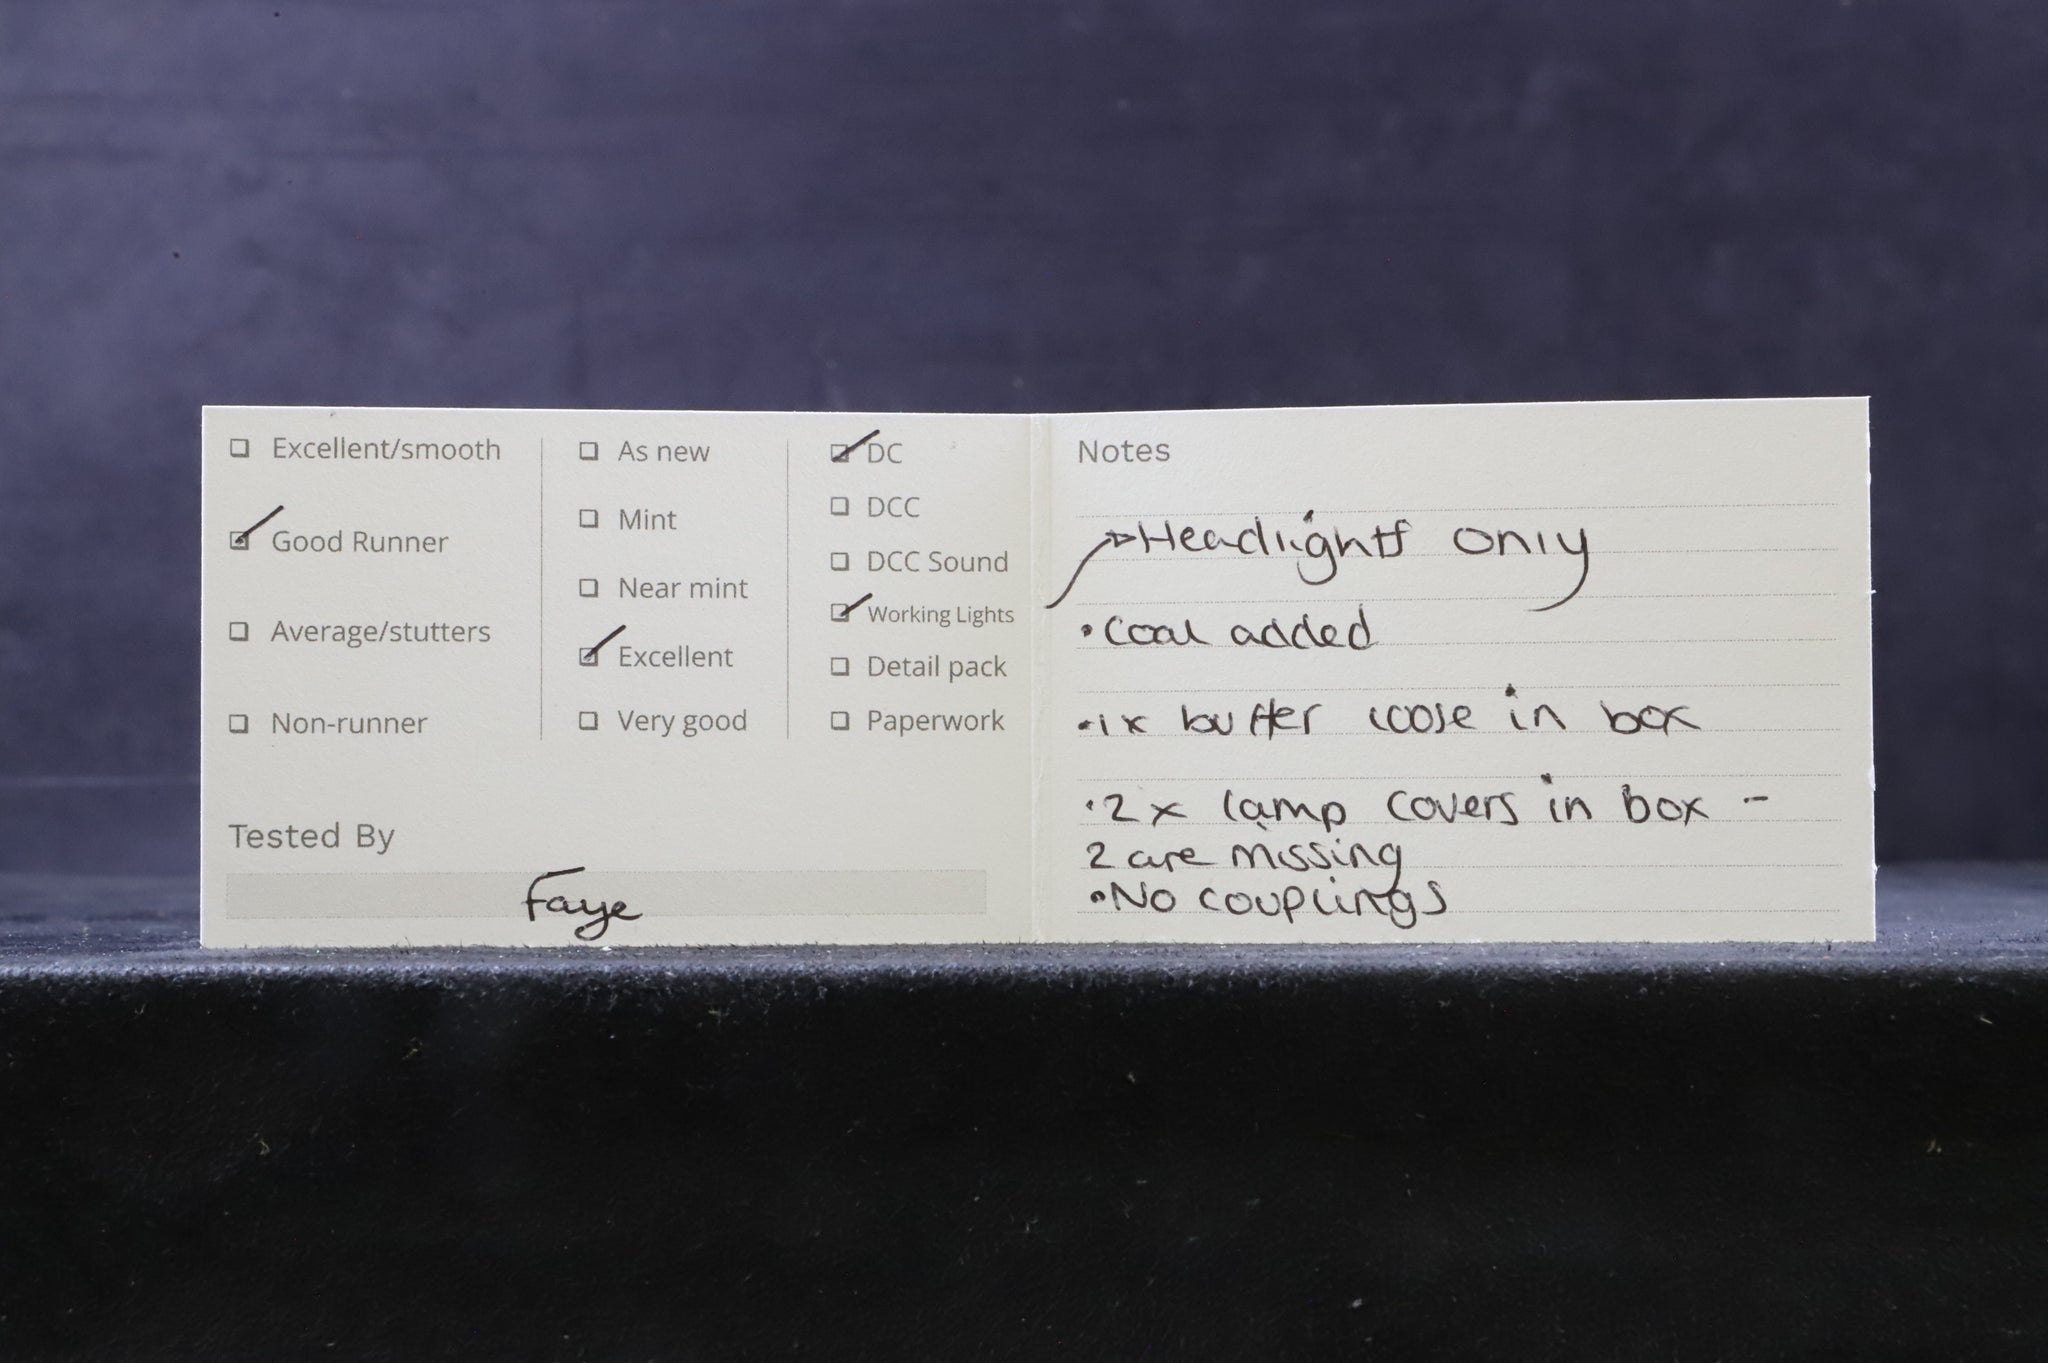 Excellent/smooth
Good Runner
Average/stutters
Non-runner
As new
Mint
Near mint
Excellent
Very good
DC
DCC
DCC Sound
Working Lights
Detail pack
Paperwork
Tested By
Faye
Notes
Headlights only
• Coal added
• 1x buffer loose in box
• 2x lamp covers in box -
2 are missing
• No couplings